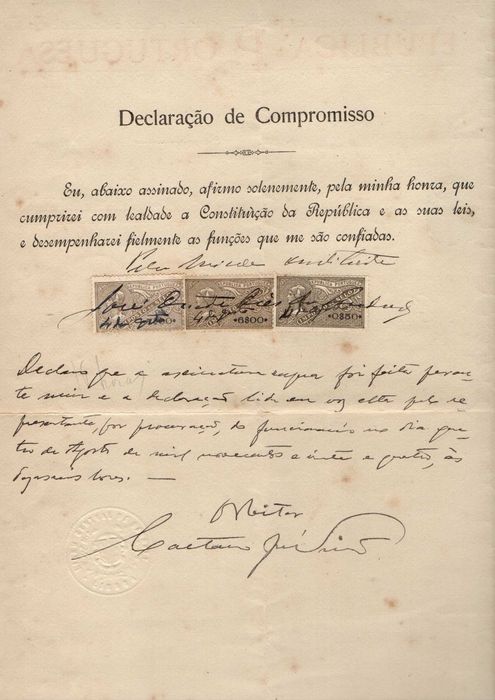 Declaração de Compromisso
Eu, abaixo assinado, afirmo solenemente, pela minha honra, que
cumprirei com lealdade a Constituìção da República e as suas leis,
e desempenharei fielmente as funções que me são confiadas.
REPUBLICA PORTUGUESA REPUBLICA PORTUGUESA REPUBLICA PORTUGUESA
José
4 de Agosto 6$00 0$50
Declaro que a assinatura supra foi feita peran-
te mim e a declaração lida em voz alta pelo re-
presentante, por procuração, do funcionário no dia qua-
tro de Agosto de mil novecentos e vinte e quatro, às
horas. —
O Reitor
Caetano